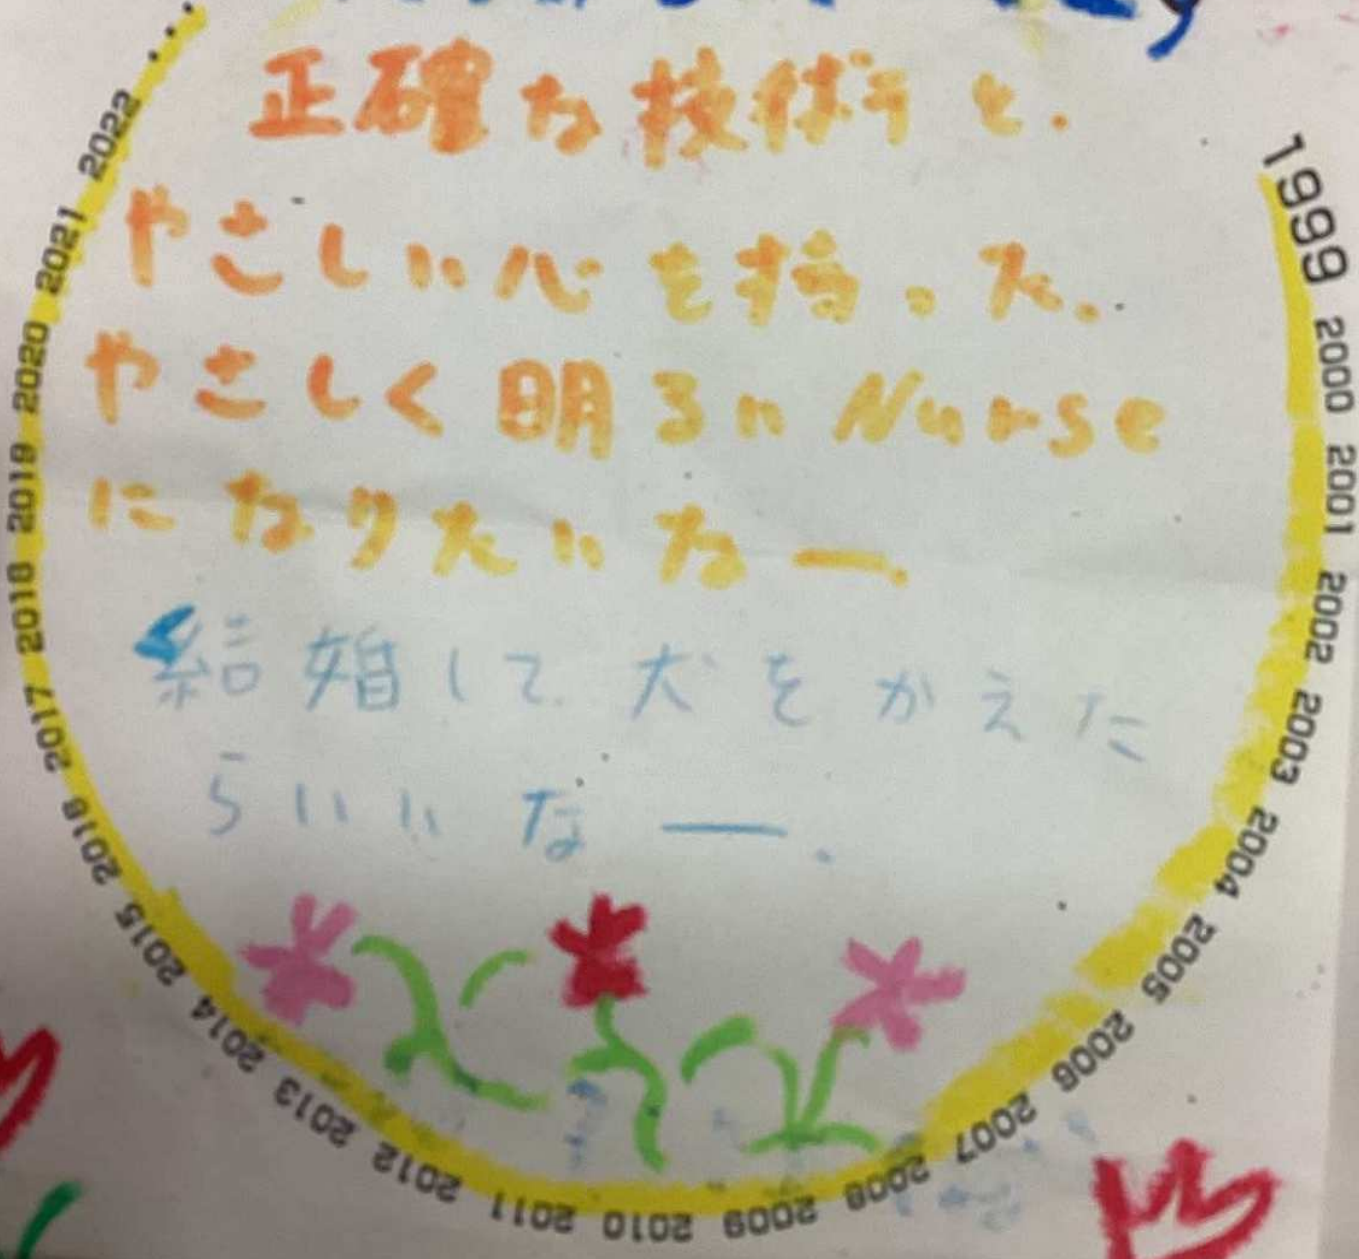 正確な技術と、
やさしい心を持った、
やさしく明るいNurse
になりたいなー。
結婚して犬をかえた
らいいなー。
1999 2000 2001 2002 2003 2004 2005 2006 2007 2008 2009 2010 2011 2012 2013 2014 2015 2016 2017 2018 2019 2020 2021 2022 ...